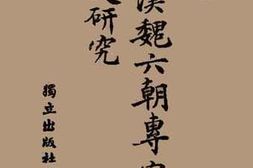 漢魏六朝專家
文研究
獨立出版社